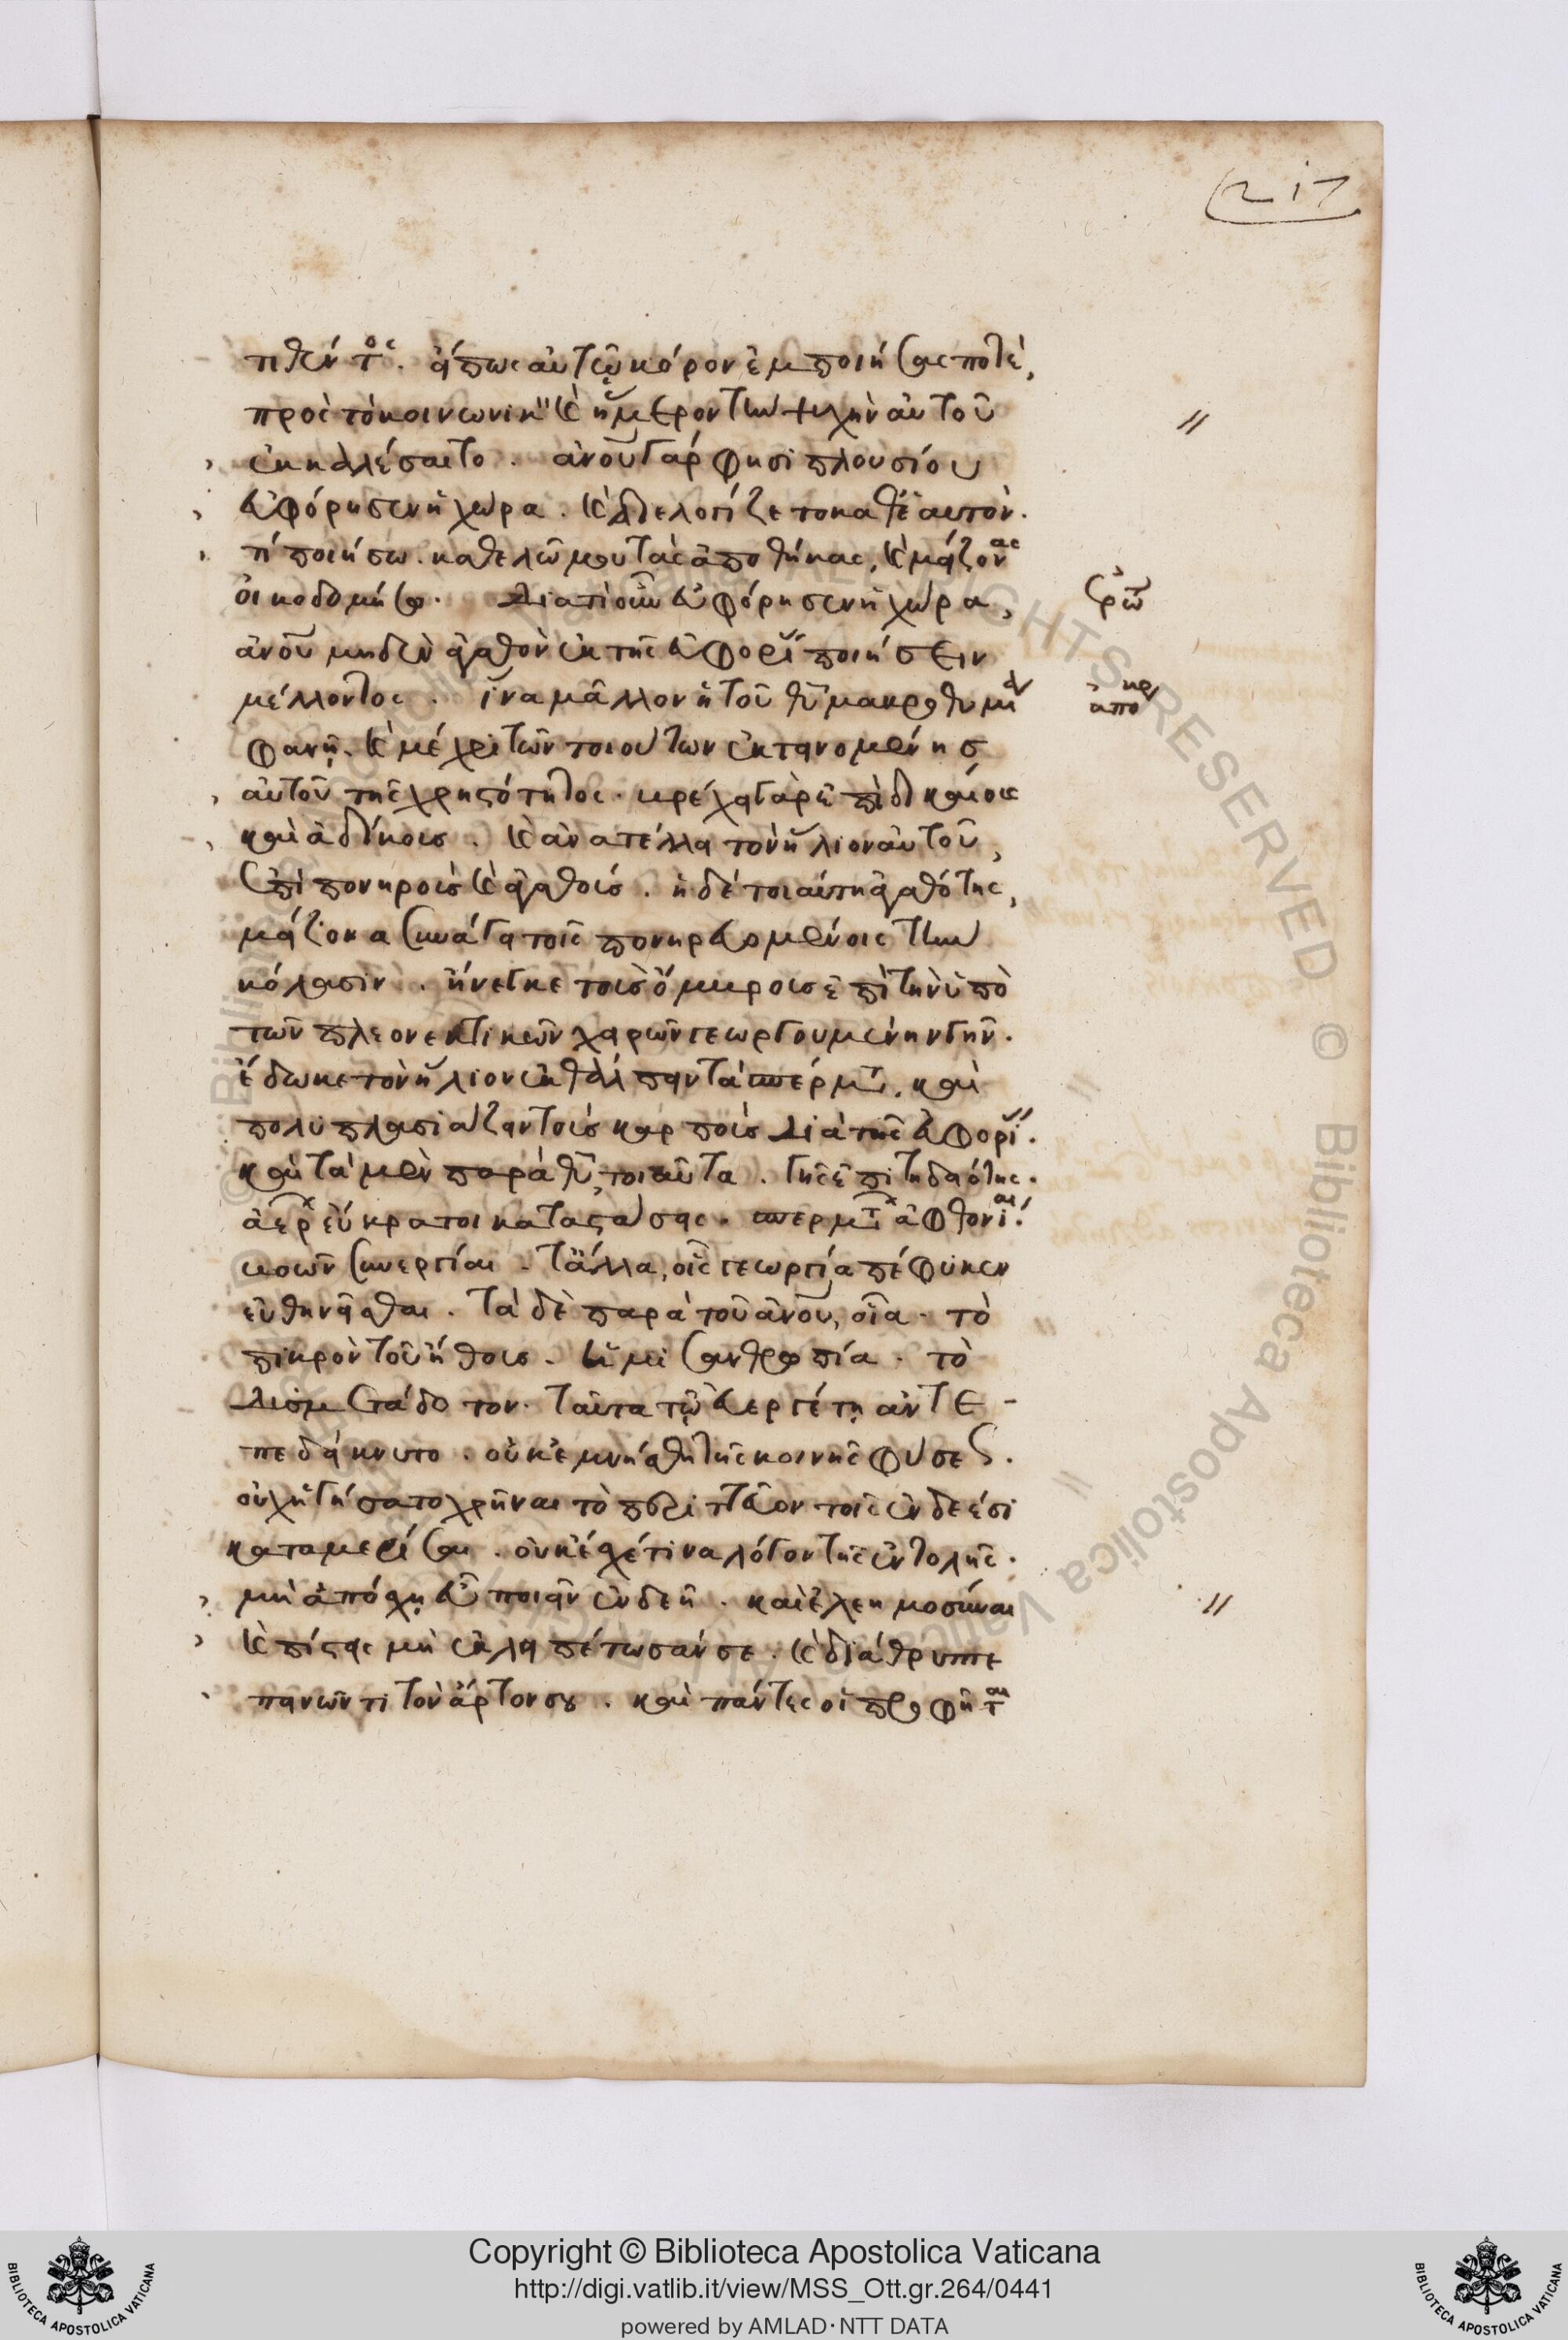 217
τιθέντος. εἴπως αὐτῷ κόρον ἐμποιήσας ποτὲ,
πρὸς τὸ κοινωνικὸν καὶ ἥμερον τὴν ψυχὴν αὐτοῦ
ἐκκαλέσαιτο. ἀνου γάρ φησι πλουσίου
εὐφόρησεν ἡ χώρα. καὶ διελογίζετο καθ' ἑαυτόν.
τί ποιήσω. καθελῶ μου τὰς ἀποθήκας, καὶ μείζονας
οἰκοδομήσω. διατί οὖν εὐφόρησεν ἡ χώρα,
ἀνου μηδὲν ἀγαθὸν ἐκ τῆς εὐφορίας ποιήσειν
μέλλοντος. ἵνα μᾶλλον ἡ τοῦ θυ μακροθυμία
φανῇ. καὶ μέχρι τῶν τοιούτων ἐκτεινομένης
αὐτοῦ τῆς χρηστότητος. βρέχει γὰρ ἐπὶ δικαίους
καὶ ἀδίκους. καὶ ἀνατέλλει τὸν ἥλιον αὐτοῦ,
ἐπὶ πονηροὺς καὶ ἀγαθούς. ἡ δὲ τοιαύτη ἀγαθότης,
μείζονα συνάγει τοῖς πονηρευομένοις τὴν
κόλασιν. ἤνεγκε τοὺς ὄμβρους ἐπὶ τὴν ὑπὸ
τῶν πλεονεκτικῶν χειρῶν γεωργουμένην γῆν.
ἔδωκε τὸν ἥλιον ἐκθάλπειν τὰ σπέρματα, καὶ
πολυπλασιάζειν τοὺς καρποὺς διὰ τῆς εὐφορίας.
καὶ τὰ μὲν παρὰ θυ, τοιαῦτα. γῆς ἐπιτηδειότης.
ἀέρων εὔκρατοι καταστάσεις. σπερμάτων ἀφθονίαι.
βοῶν συνεργίαι. τἄλλα, οἷς γεωργία πέφυκεν
εὐθηνεῖσθαι. τὰ δὲ παρὰ τοῦ ἀνου, οἷα. τὸ
πικρὸν τοῦ ἤθους. ἡ μισανθρωπία. τὸ
δυσμετάδοτον. ταῦτα τῷ εὐεργέτῃ ἀντε-
πεδείκνυτο. οὐκ ἐμνήσθη τῆς κοινῆς φύσεως.
οὐχ ἡγήσατο χρῆναι τὸ περιττεῦον τοῖς ἐνδεέσι
καταμερίσαι. οὐκ ἔσχέ τινα λόγον τῆς ἐντολῆς.
μὴ ἀπόσχῃ εὖ ποιεῖν ἐνδεῆ. καὶ ἐλεημοσύναι
καὶ πίστεις μὴ ἐκλειπέτωσάν σε. καὶ διάθρυπτε
πεινῶντι τὸν ἄρτον σου. καὶ πάντες οἱ προφῆται
Copyright © Biblioteca Apostolica Vaticana
http://digi.vatlib.it/view/MSS_Ott.gr.264/0441
powered by AMLAD·NTT DATA
BIBLIOTECA APOSTOLICA VATICANA
BIBLIOTECA APOSTOLICA VATICANA